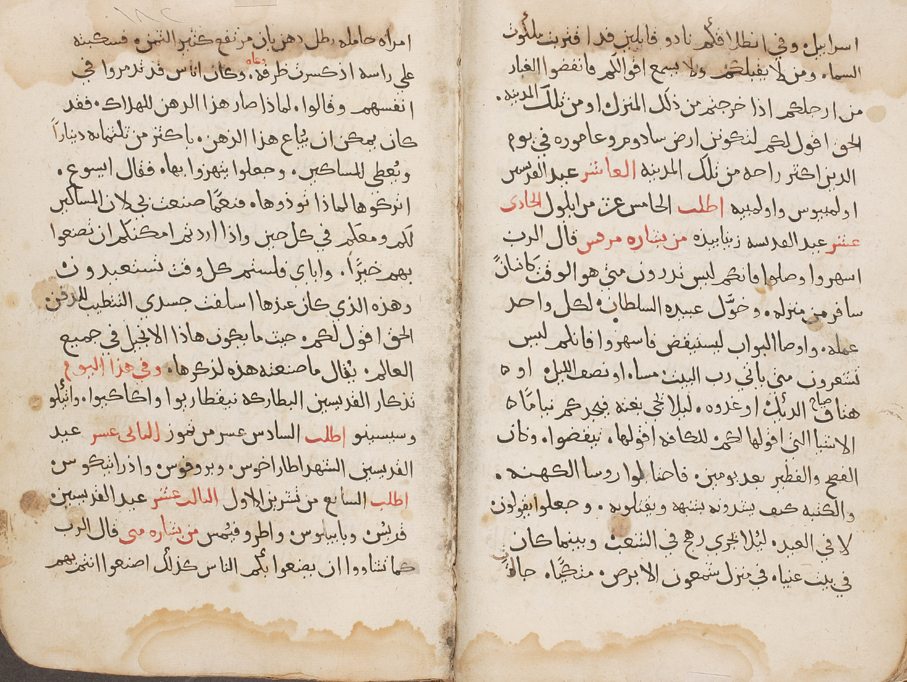 اسراييل. وفي انطلاقكم نادو قايلين قد اقتربت ملكوت
السما. ومن لا يقبلكم ولا يسمع اقوالكم فانفضوا الغبار
من ارجلكم اذا خرجتم من ذلك المنزل او من تلك المدينه.
الحق اقول لكم لتكونن ارض سادوم وعاموره في يوم
الدين اكثر راحه من تلك المدينه العاشر عيد القديسين
اولمبيوس واولمبيه اطلب الخامس عشر من ايلول الحادي
عشر عيد القديسه زيناييده من بشاره مرقس قال الرب
اسهروا وصلوا فانكم ليس تدرون متي هو الوقت كانسانٌ
سافر من منزله. وخوَّل عبيده السلطان لكل واحد
عمله. واوصا البواب ليستيقض فاسهروا فانكم ليس
تشعرون متى ياتي رب البيت مساء. او نصف الليل او ه
هتاف صياح الديك او غدوه. ليلا يجي بغته فيجدكم نيامًا ه
الاشيا التي اقولها لكم. للكافه اقولها. تيقضوا. وكان
الفصح والفطير بعد يومين. فاحتالوا روسا الكهنه.
والكتبه كيف يشدونه بتهه ويقتلونه. وجعلوا يقولون
لا في العيد. ليلا يجري رهج في الشعب وبينما كان
في بيت عنياء في منزل شمعون الابرص. متكيًا. جات
امراه حامله رطل دهن بان مرتفع كثير الثمن. فسكبته
علي راسه اذ كسرت ظرفه وعاه. وكان اناس قد تذمروا في
انفسهم وقالوا. لماذا صار هذا الدهن للهلاك. فقد
كان يمكن ان يُباع هذا الدهن. باكثر من ثلثمايه دينارًا
ويُعطي للمساكين. وجعلوا ينهزوا بها. فقال ايسوع.
اتركوها لماذا توذوها. فنعمَّا صنعت بي لان المساكين
لكم ومعكم في كل حين. واذا اردتم امكنكم ان تصنعوا
بهم خيرًا. واياي فلستم كل وقت تستعيدون
وهذه الذي كان عندها اسلفت جسدي التطيب للدفن.
الحق اقول لكم. حيث ما يكون هاذا الانجيل في جميع
العالم. يقال ما صنعته هذه لذكرها. وفي هذا اليوم
تذكار القديسين البطاركه نيقطاريوا واكاكيوا. واتيلو
وسيسينو اطلب السادس عسر من تموز الثاني عسر عيد
القديسين الشهدا طاراخوس. وبروفوس. واذرانيكوس
اطلب السابع من تشرين الاول الثالث عشر عيد القديسين
قربش. وبابيلوس. واطروفيمس من بشاره متي قال الرب
كما تشاووا ان يصنعوا بكم الناس كذلك اصنعوا انتم بهم